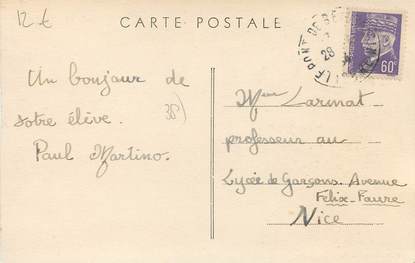 12 €
CARTE POSTALE
LE PONT DE BE
28
60c
Un bonjour de
votre élève.
38)
Paul Martino.
Mme Larmat
professeur au
Lycée de Garçons. Avenue
Félix-Faure
Nice